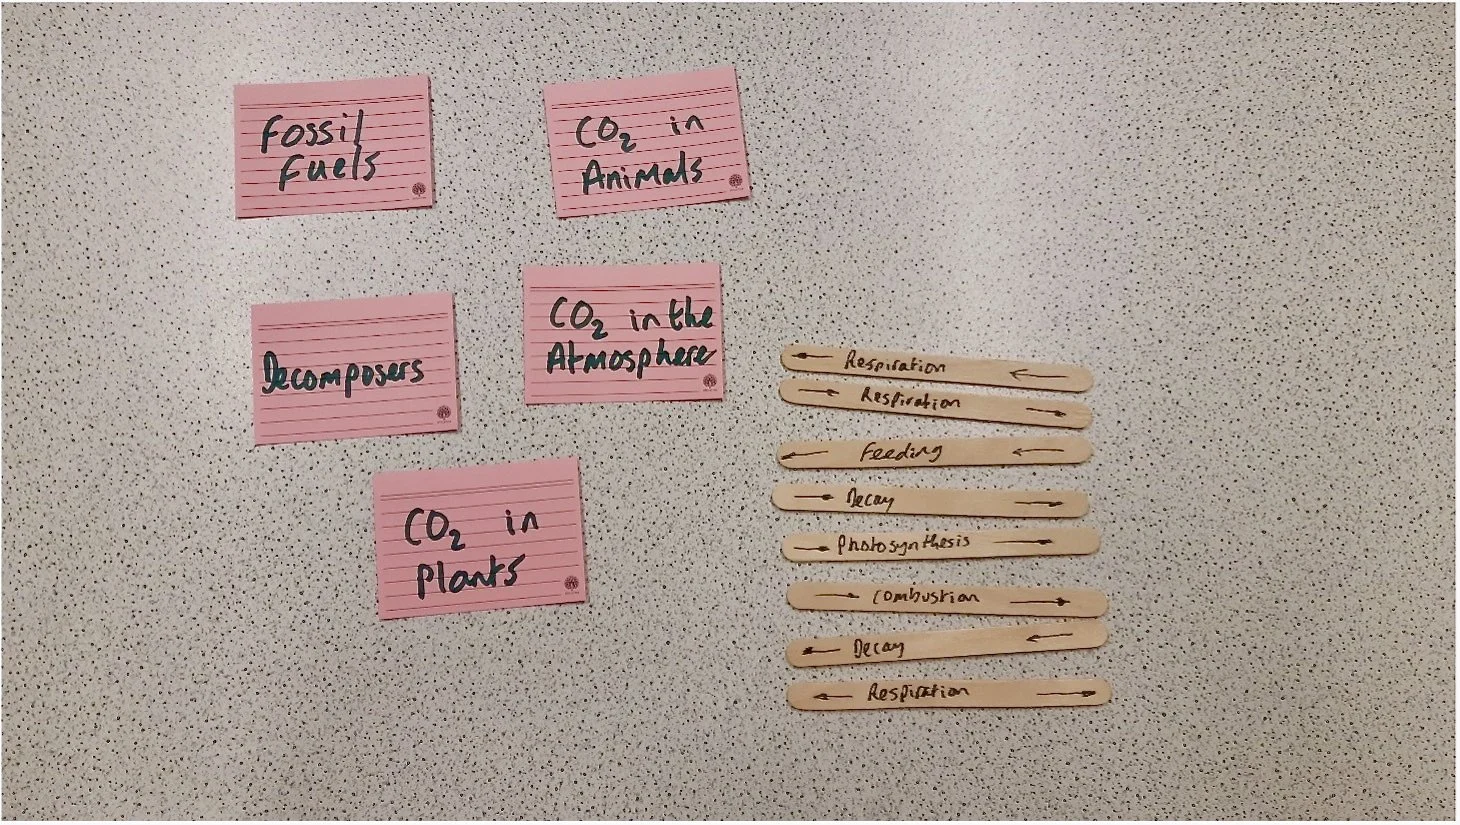 Fossil
Fuels
CO₂ in
Animals
Decomposers
CO₂ in the
Atmosphere
CO₂ in
Plants
← Respiration ←
→ Respiration →
← Feeding ←
→ Decay →
→ Photosynthesis →
→ Combustion →
← Decay ←
← Respiration →